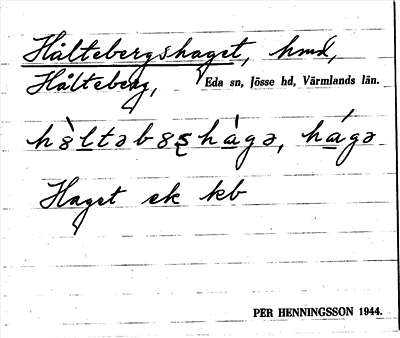 Håltebergshaget, hmd,
Hålteberg, Eda sn, Jösse hd, Värmlands län.
hòltəbərshàgə, hágə
Haget ek kb
PER HENNINGSSON 1944.